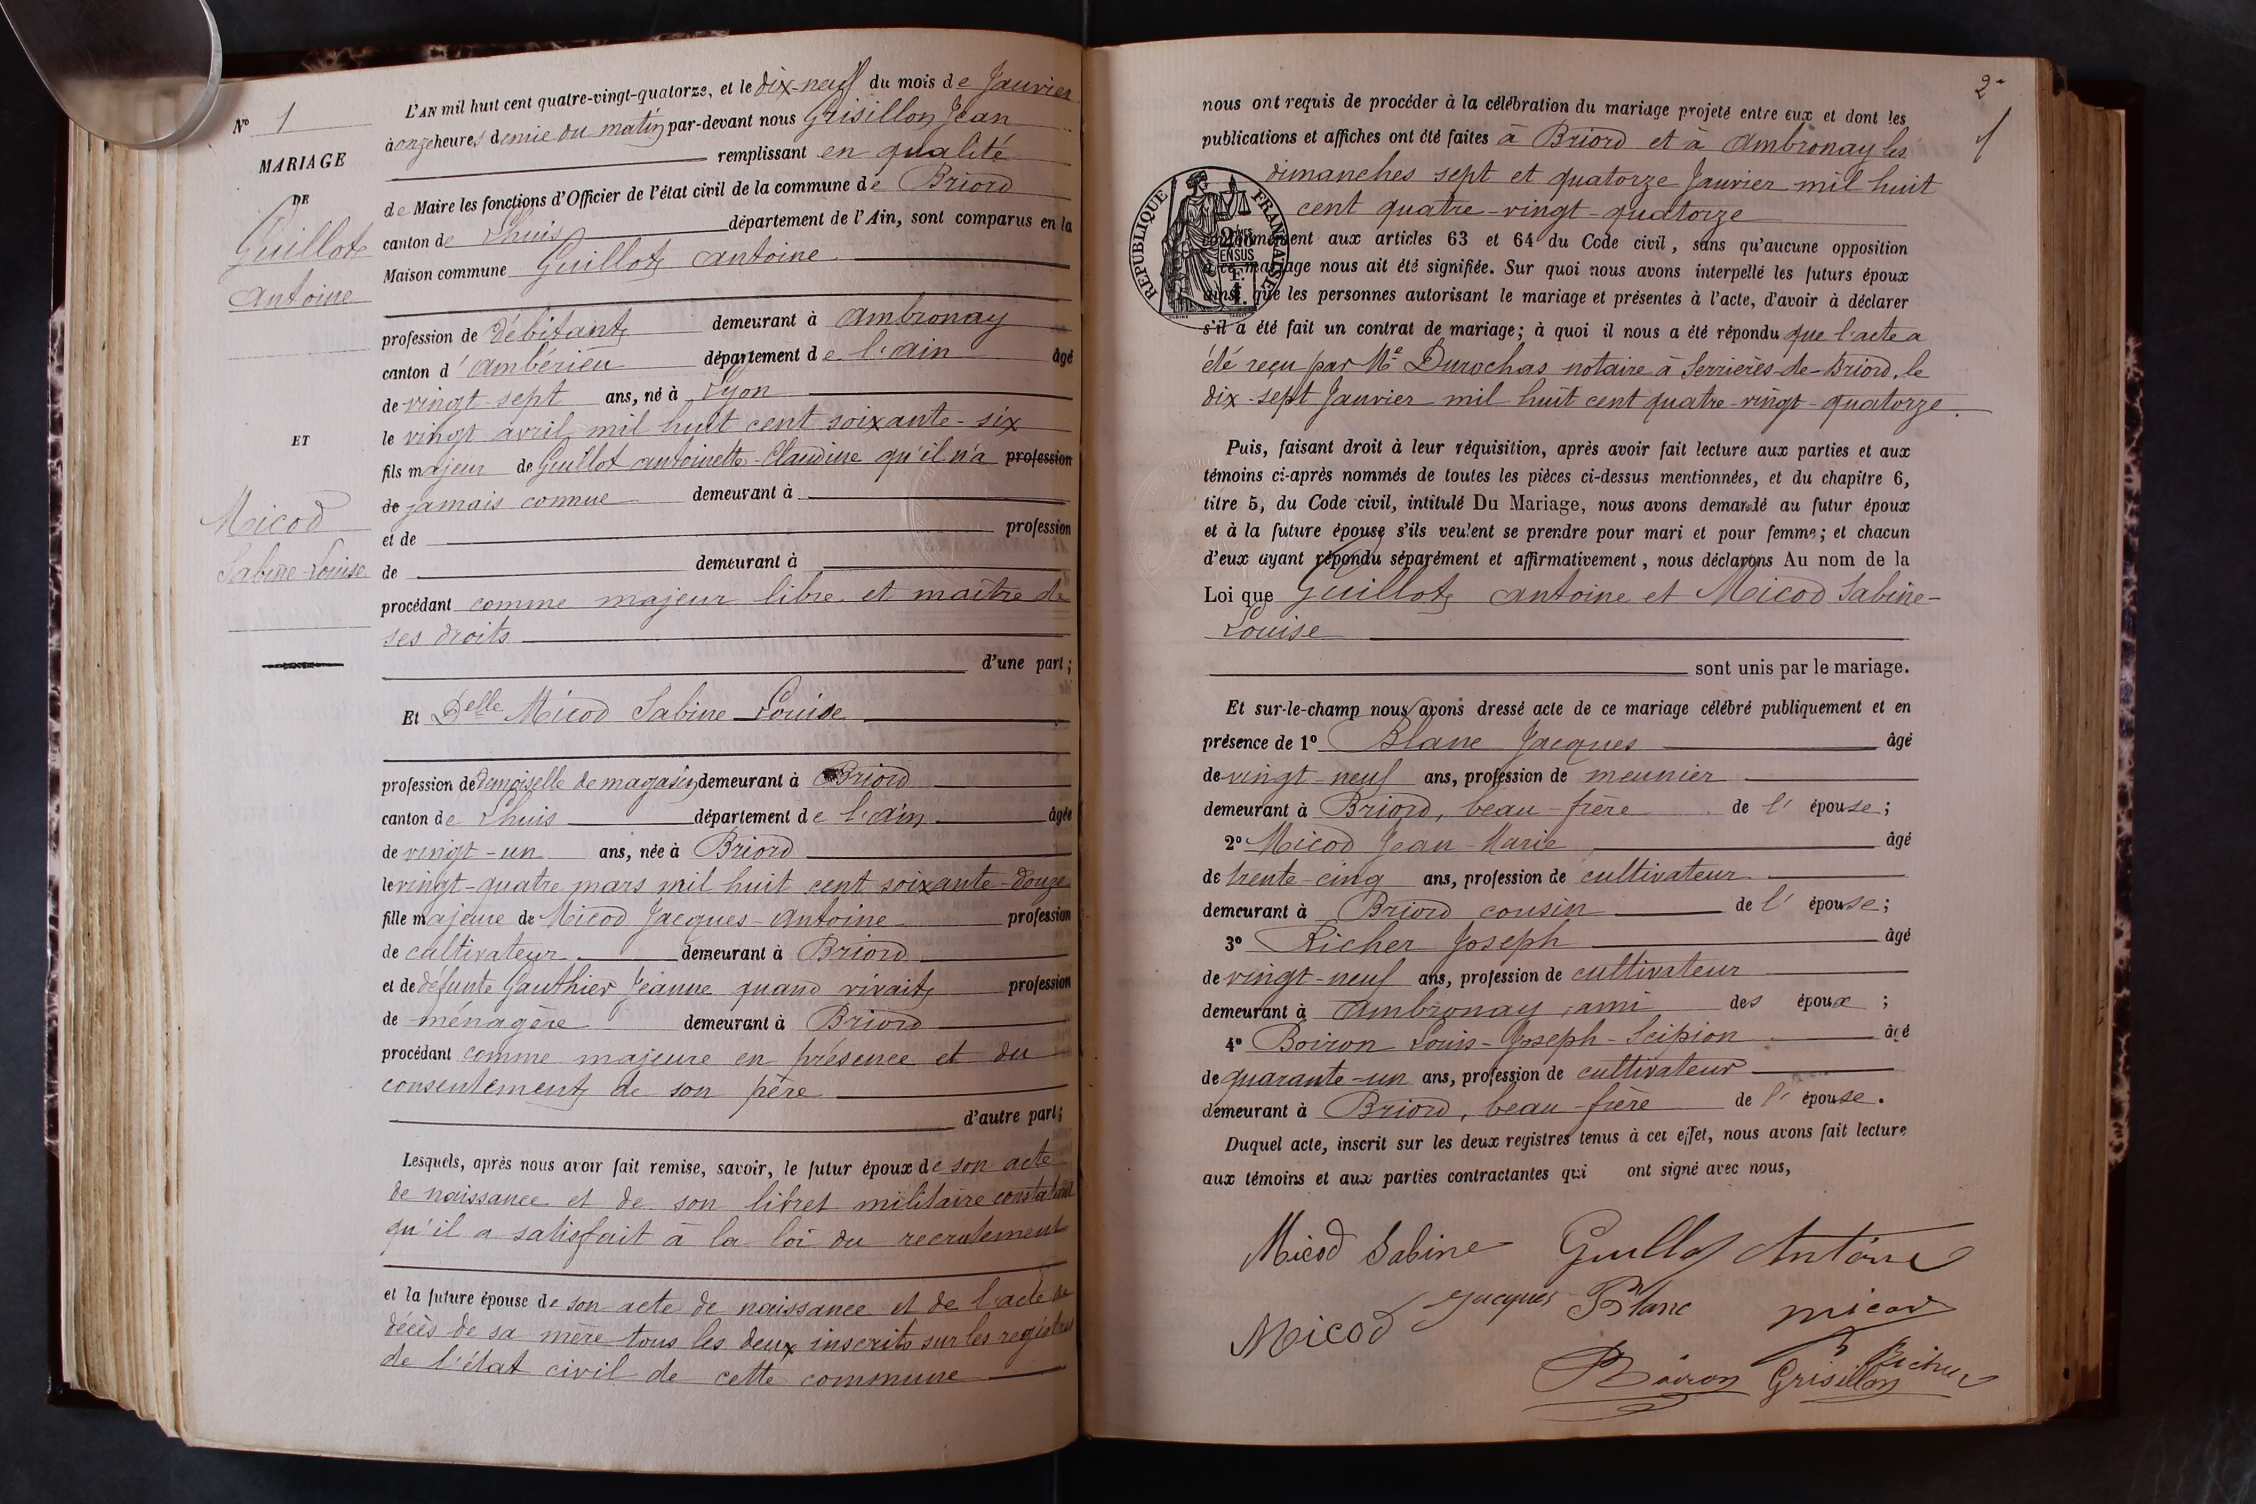 N° 1
MARIAGE
DE
Guillot
Antoine
ET
Micod
Sabine-Louise
L'AN mil huit cent quatre-vingt-quatorze, et le dix-neuf du mois de Janvier
à onze heures demie du matin par-devant nous Grisillon Jean
remplissant en qualité
de Maire les fonctions d'Officier de l'état civil de la commune de Briord
canton de Lhuis département de l'Ain, sont comparus en la
Maison commune Guillot Antoine
profession de débitant demeurant à Ambronay
canton d'Ambérieu département de l'Ain âgé
de vingt-sept ans, né à Lyon
le vingt avril mil huit cent soixante-six
fils majeur de Guillot Antoinette-Claudine qu'il n'a profession
de jamais connue demeurant à
et de profession
de demeurant à
procédant comme majeur libre et maître de
ses droits
d'une part;
Et Delle Micod Sabine Louise
profession de demoiselle de magasin demeurant à Briord
canton de Lhuis département de l'Ain âgée
de vingt-un ans, née à Briord
le vingt-quatre mars mil huit cent soixante-douze
fille majeure de Micod Jacques-Antoine profession
de cultivateur demeurant à Briord
et de défunte Gauthier Jeanne quand vivait profession
de ménagère demeurant à Briord
procédant comme majeure en présence et du
consentement de son père
d'autre part;
Lesquels, après nous avoir fait remise, savoir, le futur époux de son acte
de naissance et de son livret militaire constatant
qu'il a satisfait à la loi du recrutement
et la future épouse de son acte de naissance et de l'acte de
décès de sa mère tous les deux inscrits sur les registres
de l'état civil de cette commune
2
1
nous ont requis de procéder à la célébration du mariage projeté entre eux et dont les
publications et affiches ont été faites à Briord et à Ambronay les
dimanches sept et quatorze Janvier mil huit
cent quatre-vingt-quatorze
RÉPUBLIQUE FRANÇAISE
conformément aux articles 63 et 64 du Code civil, sans qu'aucune opposition
à ce mariage nous ait été signifiée. Sur quoi nous avons interpellé les futurs époux
ainsi que les personnes autorisant le mariage et présentes à l'acte, d'avoir à déclarer
s'il a été fait un contrat de mariage; à quoi il nous a été répondu que l'acte a
été reçu par Me Durochas notaire à Serrières-de-Briord, le
dix-sept Janvier mil huit cent quatre-vingt-quatorze.
Puis, faisant droit à leur réquisition, après avoir fait lecture aux parties et aux
témoins ci-après nommés de toutes les pièces ci-dessus mentionnées, et du chapitre 6,
titre 5, du Code civil, intitulé Du Mariage, nous avons demandé au futur époux
et à la future épouse s'ils veulent se prendre pour mari et pour femme; et chacun
d'eux ayant répondu séparément et affirmativement, nous déclarons Au nom de la
Loi que Guillot Antoine et Micod Sabine-
Louise
sont unis par le mariage.
Et sur-le-champ nous avons dressé acte de ce mariage célébré publiquement et en
présence de 1° Blanc Jacques âgé
de vingt-neuf ans, profession de meunier
demeurant à Briord, beau-frère de l'épouse;
2° Micod Jean-Marie âgé
de trente-cinq ans, profession de cultivateur
demeurant à Briord cousin de l'épouse;
3° Richer Joseph âgé
de vingt-neuf ans, profession de cultivateur
demeurant à Ambronay, ami des époux;
4° Boiron Louis-Joseph-Scipion âgé
de quarante-un ans, profession de cultivateur
demeurant à Briord, beau-frère de l'épouse.
Duquel acte, inscrit sur les deux registres tenus à cet effet, nous avons fait lecture
aux témoins et aux parties contractantes qui ont signé avec nous,
Micod Sabine Guillot Antoine
Jacques Blanc Micod
Micod
Boiron Grisillon Richer